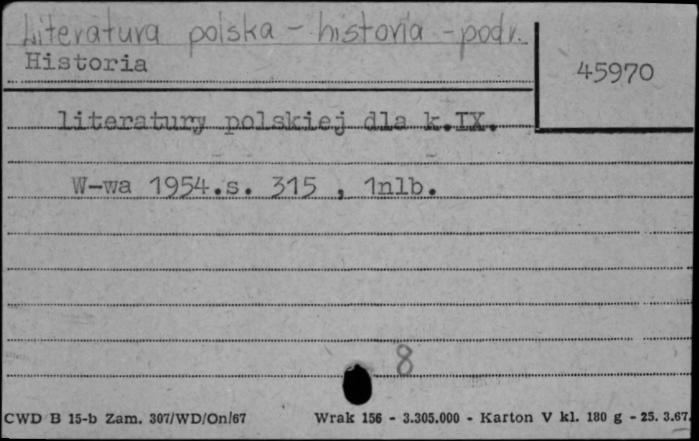 Literatura polska - historia - podr.
Historia
45970
literatury polskiej dla k.IX.
W-wa 1954.s. 315 , 1nlb.
8
CWD B 15-b Zam. 307/WD/On/67 Wrak 156 - 3.305.000 - Karton V kl. 180 g - 25. 3.67.